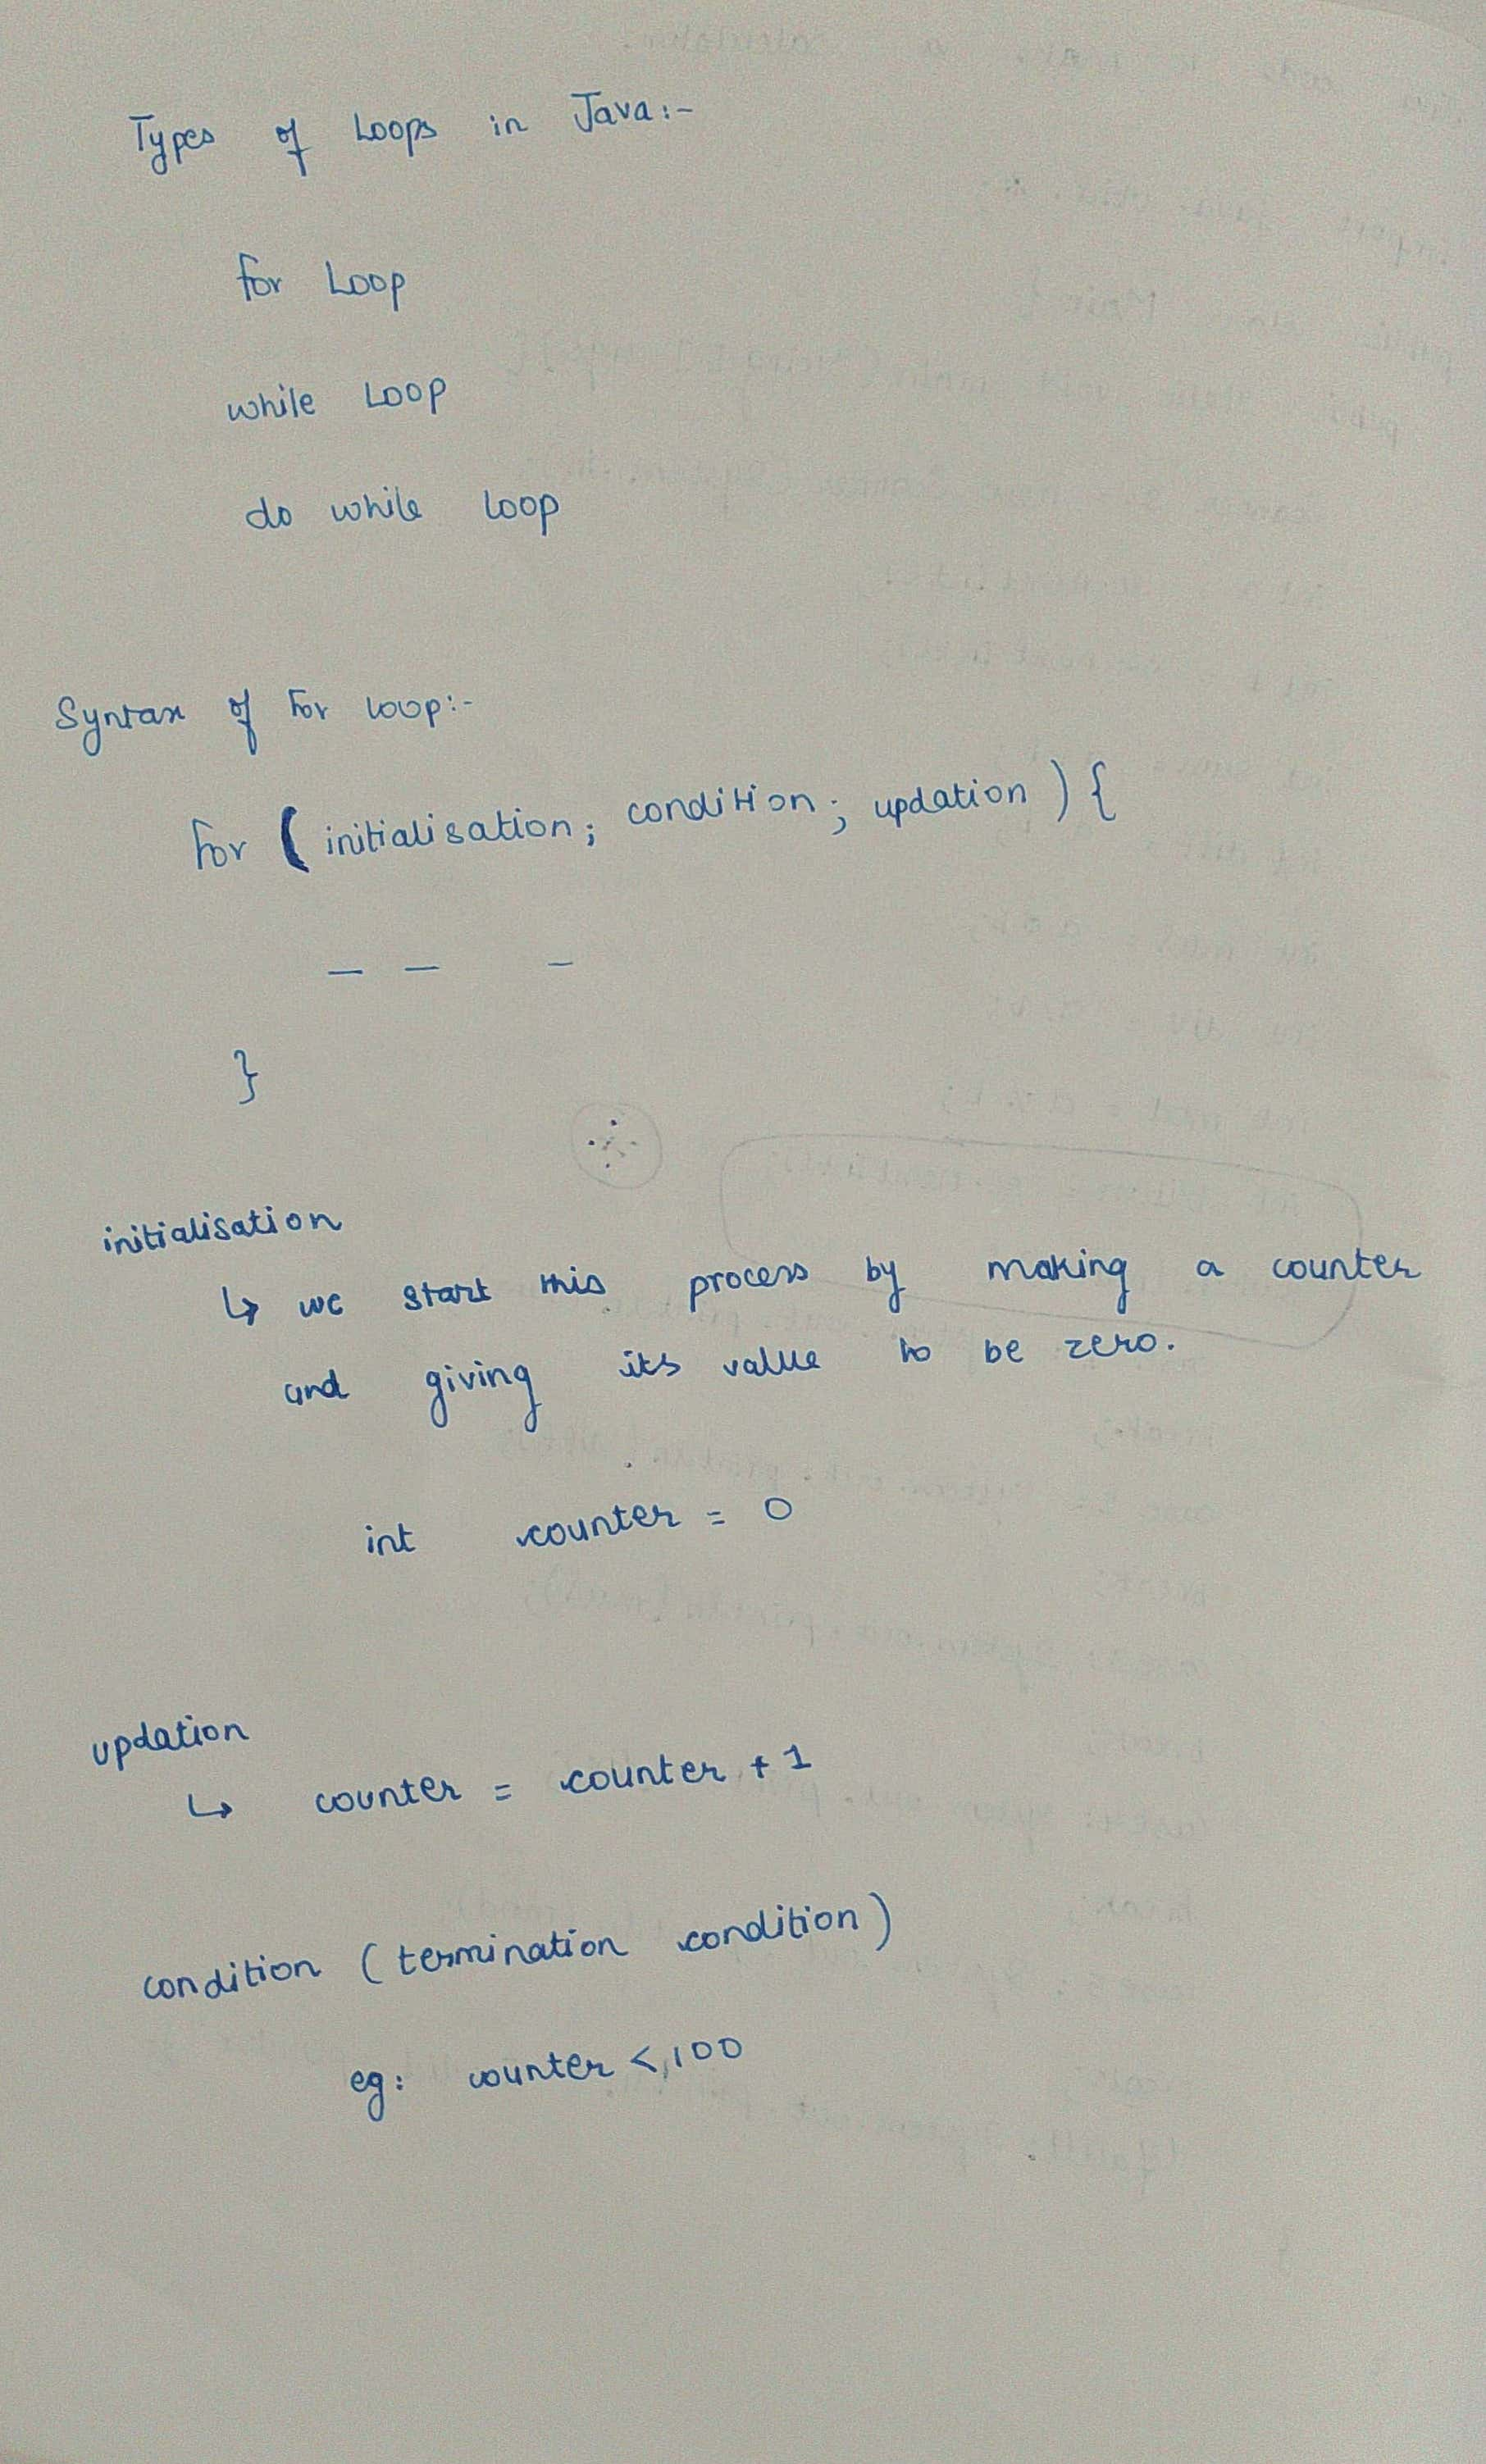 Types of Loops in Java:-
for Loop
while Loop
do while loop
Syntax of for loop:-
for (initialisation; condition; updation) {
— — —
}
initialisation
↳ we start this process by making a counter
and giving its value to be zero.
int counter = 0
updation
↳ counter = counter + 1
condition (termination condition)
eg: counter < 100